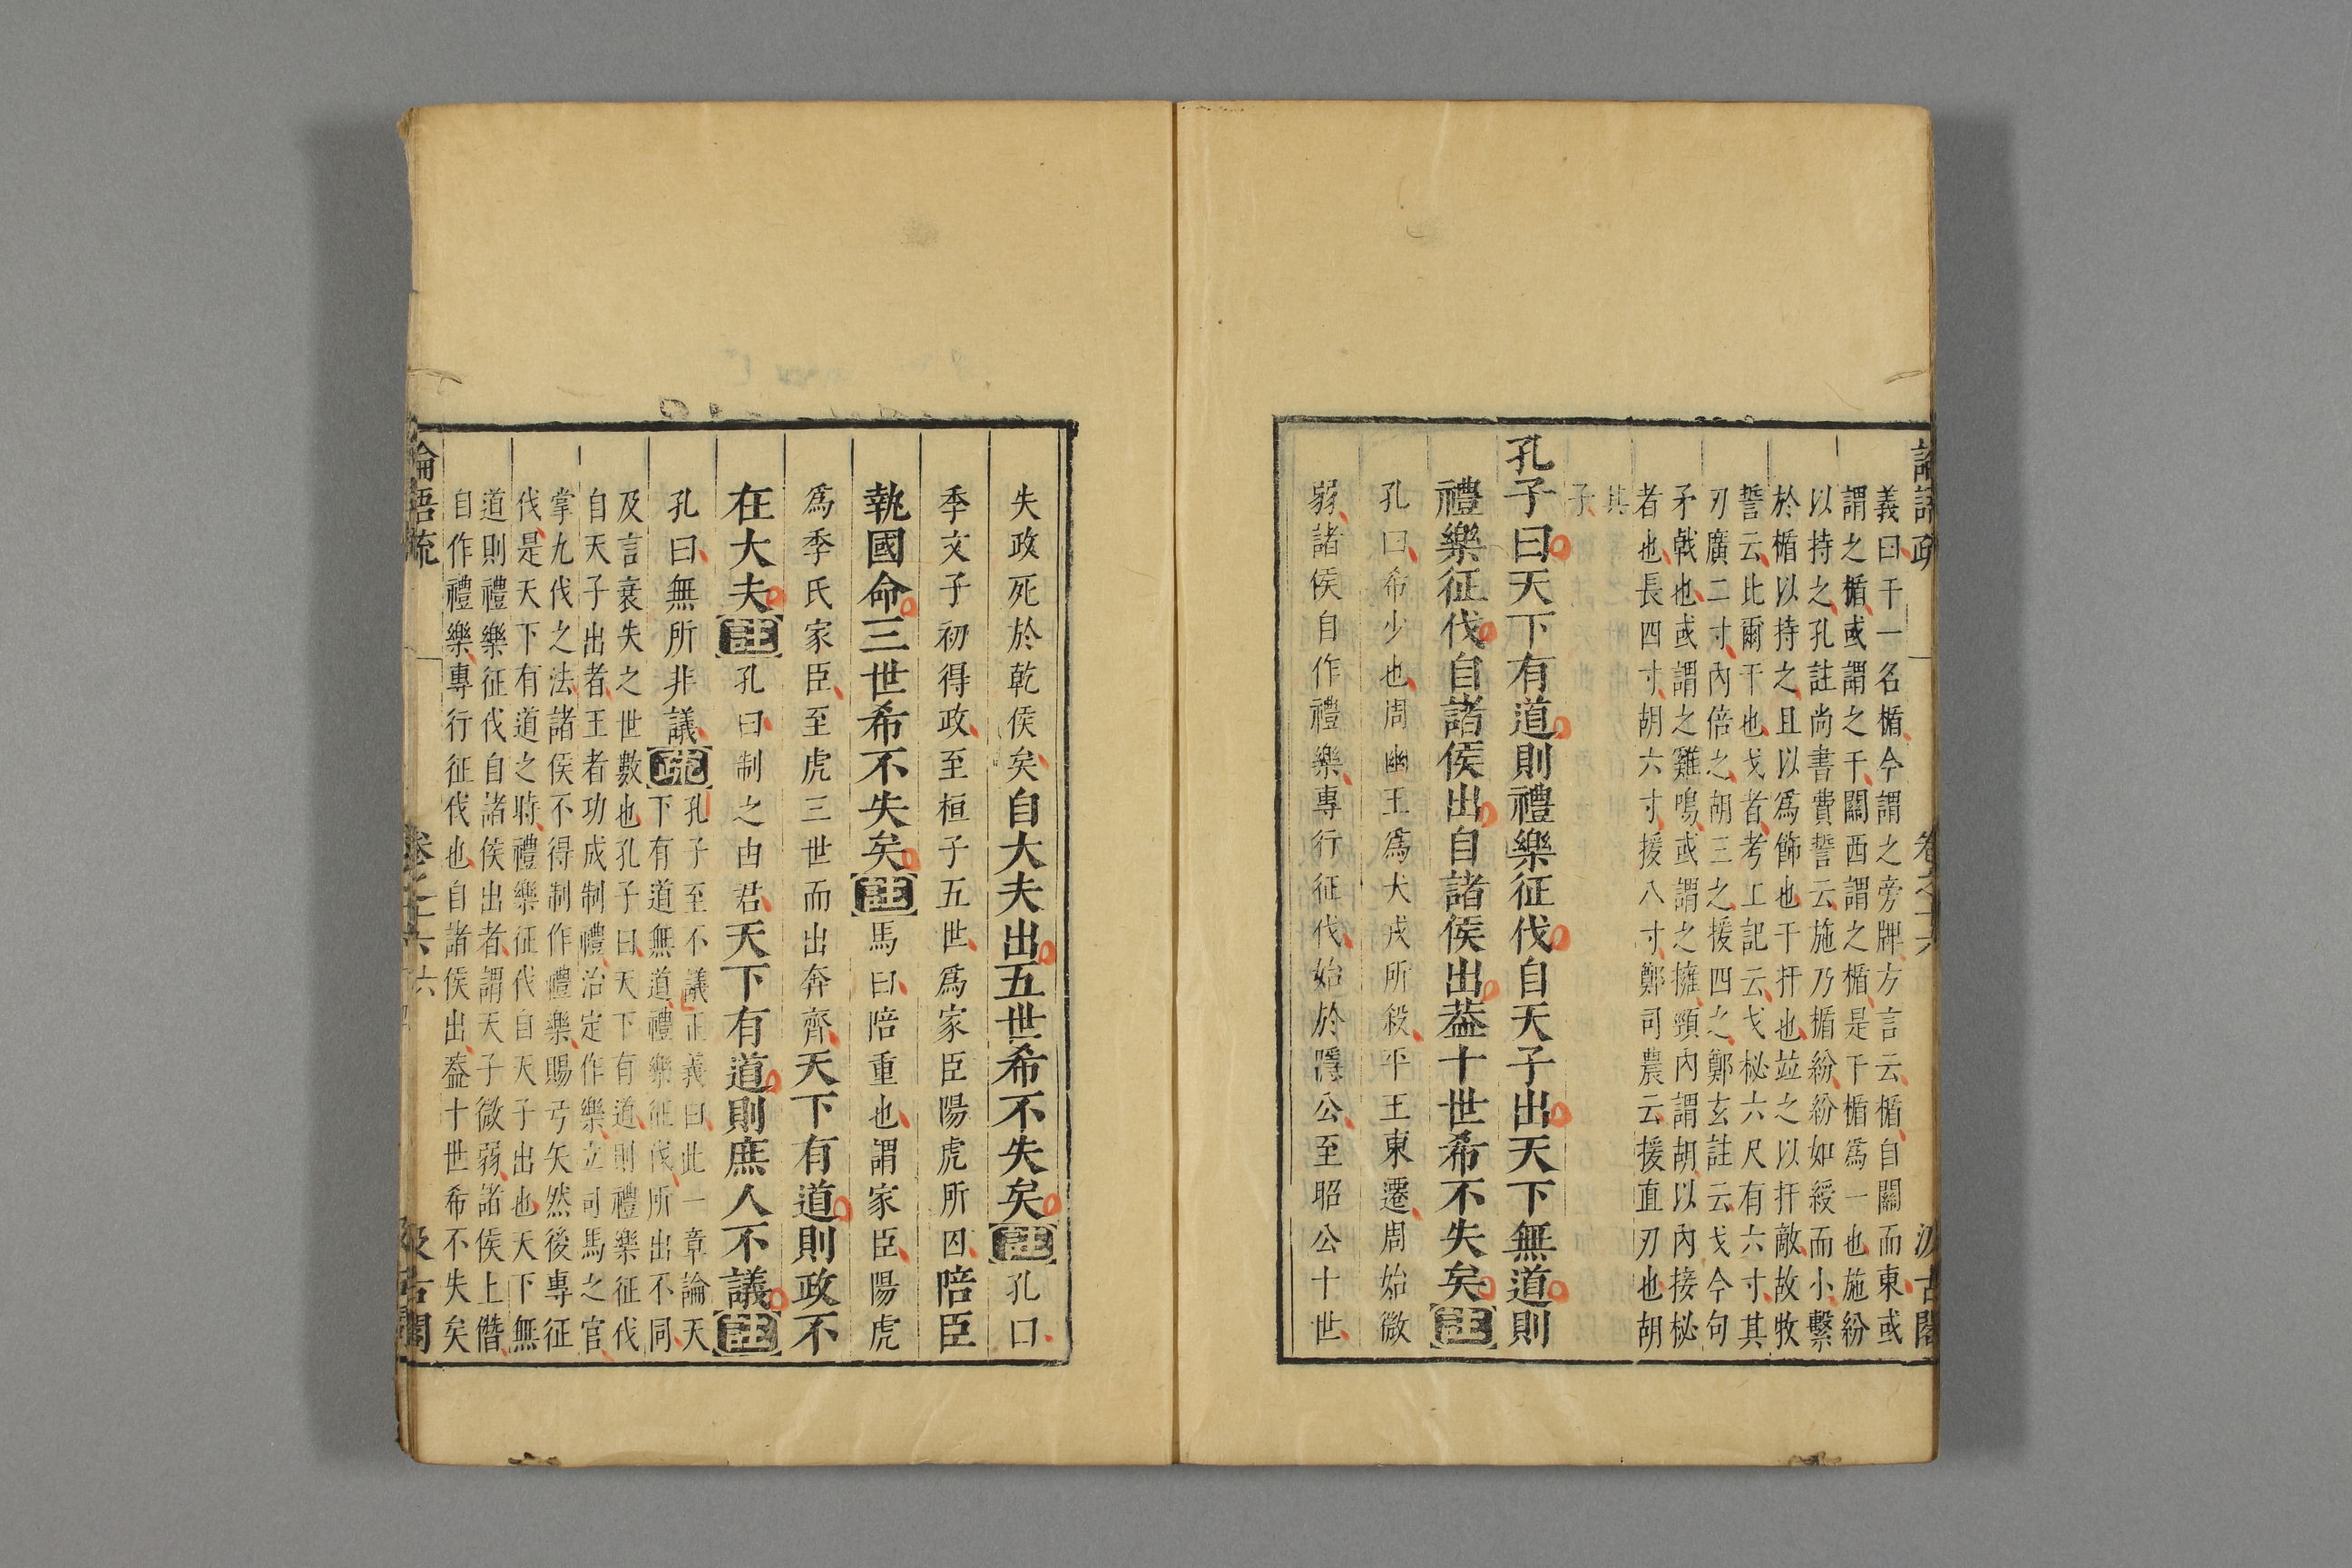 義曰干一名楯今謂之旁牌方言云楯自關而東或
謂之楯或謂之干關西謂之楯是干楯爲一也施紛
以持之孔註尚書費誓云施乃楯紛紛如綬而小繫
於楯以持之且以爲飾也干扞也竝之以扞敵故牧
誓云比爾干也戈者考工記云戈柲六尺有六寸其
刃廣二寸內倍之胡三之援四之鄭玄註云戈今句
矛戟也或謂之雞鳴或謂之擁頸內謂胡以內接柲
者也長四寸胡六寸援八寸鄭司農云援直刃也胡
其
子
孔子曰天下有道則禮樂征伐自天子出天下無道則
禮樂征伐自諸侯出自諸侯出葢十世希不失矣註
孔曰希少也周幽王爲犬戎所殺平王東遷周始微
弱諸侯自作禮樂專行征伐始於隱公至昭公十世
失政死於乾侯矣自大夫出五世希不失矣註孔曰
季文子初得政至桓子五世爲家臣陽虎所囚陪臣
執國命三世希不失矣註馬曰陪重也謂家臣陽虎
爲季氏家臣至虎三世而出奔齊天下有道則政不
在大夫註孔曰制之由君天下有道則庶人不議註
孔曰無所非議疏孔子至不議正義曰此一章論天
下有道無道禮樂征伐所出不同
及言衰失之世數也孔子曰天下有道則禮樂征伐
自天子出者王者功成制禮治定作樂立司馬之官
掌九伐之法諸侯不得制作禮樂賜弓矢然後專征
伐是天下有道之時禮樂征伐自天子出也天下無
道則禮樂征伐自諸侯出者謂天子微弱諸侯上僭
自作禮樂專行征伐也自諸侯出葢十世希不失矣
論語疏 卷之十六 六 汲古閣